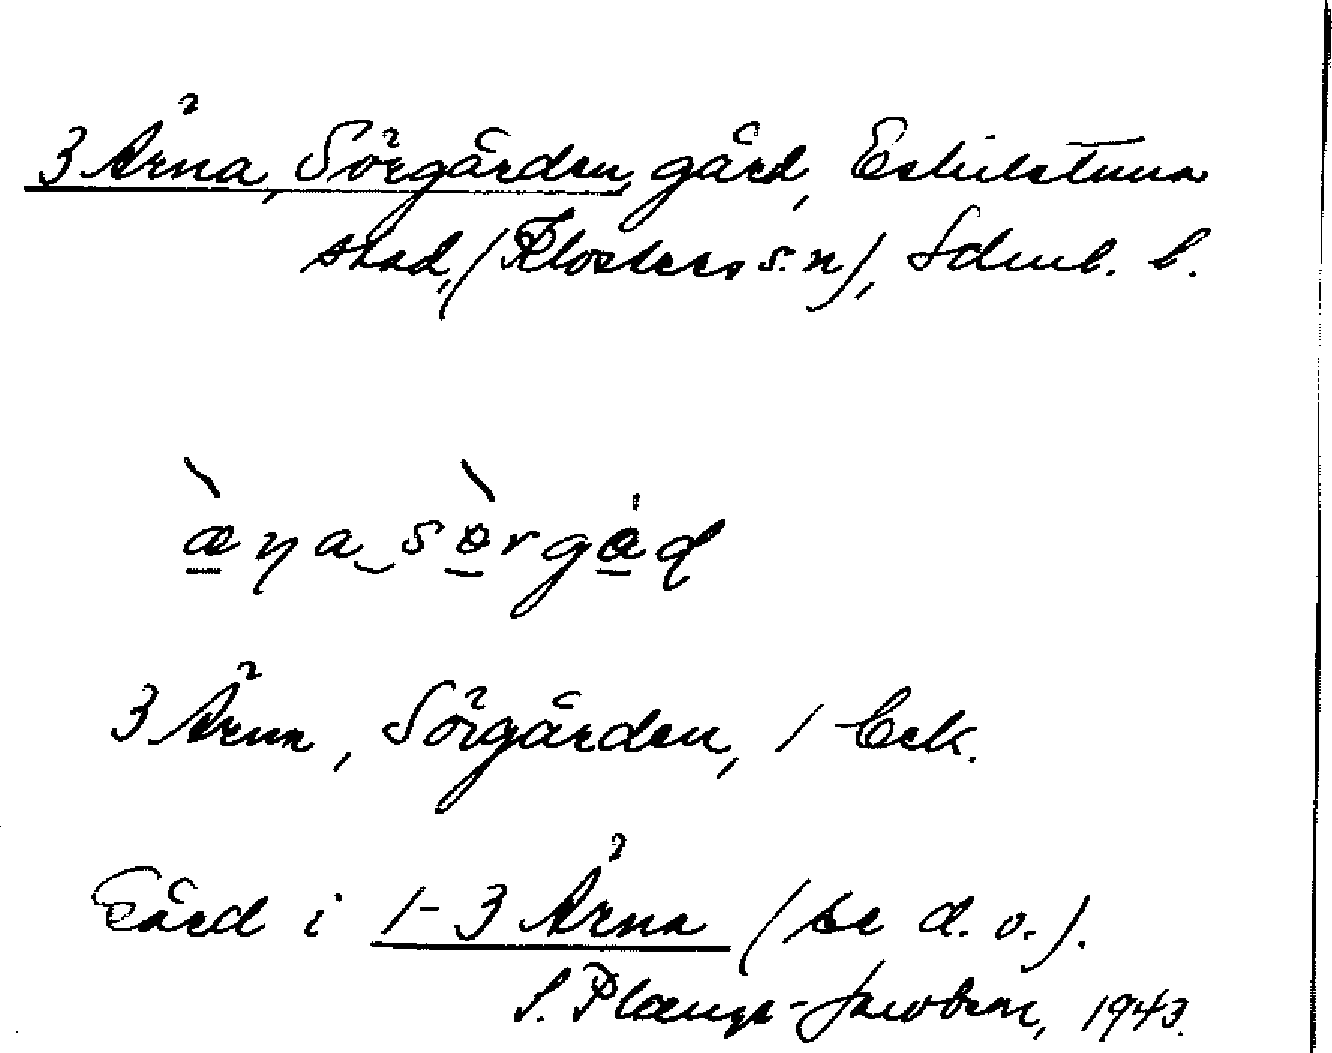 3 Ärna, Sörgården, gård, Eskilstuna
stad, (Klosters s:n), Sdml. l.
æɳa sörgåɖ
3 Ärna, Sörgården, 1 Eek.
Gård i 1-3 Ärna (se d. o.).
S. Plænge-Jacobson, 1943.